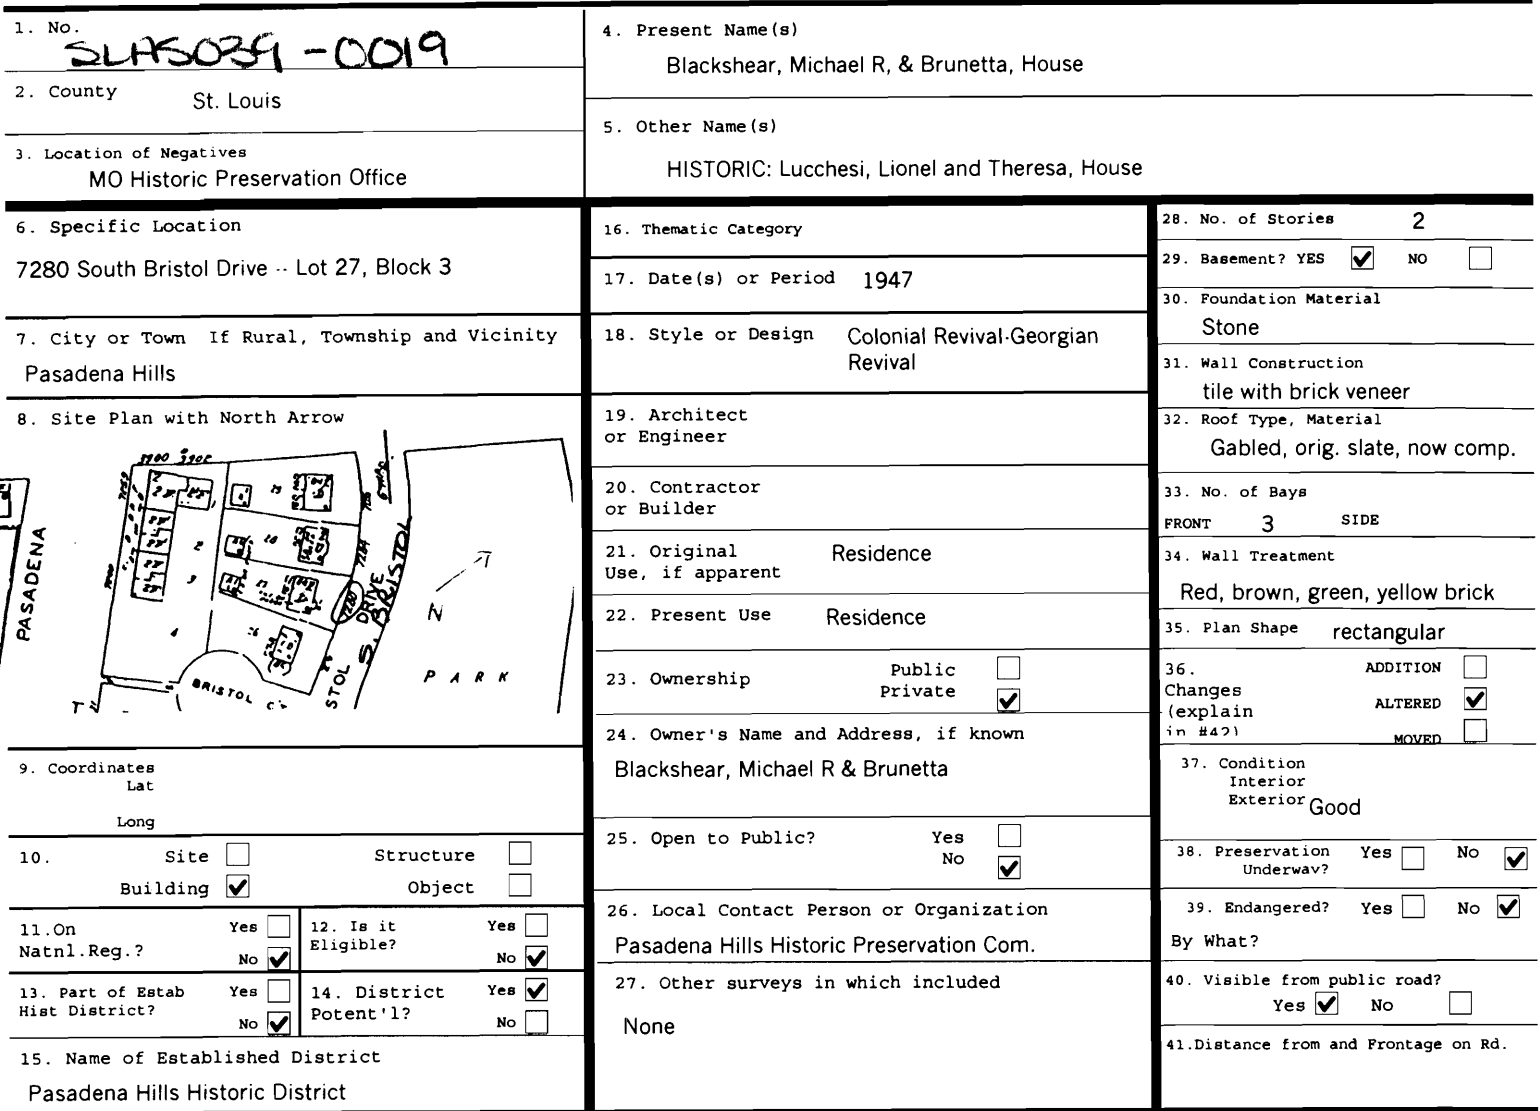 1. No.
SLAS039-0019
2. County St. Louis
3. Location of Negatives
MO Historic Preservation Office
4. Present Name(s)
Blackshear, Michael R, & Brunetta, House
5. Other Name(s)
HISTORIC: Lucchesi, Lionel and Theresa, House
6. Specific Location
7280 South Bristol Drive -- Lot 27, Block 3
7. City or Town If Rural, Township and Vicinity
Pasadena Hills
8. Site Plan with North Arrow
PASADENA
BRISTOL
DRIVE
S. BRISTOL
7280
7284
N
PARK
STOL
9. Coordinates
Lat
Long
10. Site Structure
Building ✓ Object
11.On Yes
Natnl.Reg.? No ✓
12. Is it Yes
Eligible? No ✓
13. Part of Estab Yes
Hist District? No ✓
14. District Yes ✓
Potent'l? No
15. Name of Established District
Pasadena Hills Historic District
16. Thematic Category
17. Date(s) or Period 1947
18. Style or Design Colonial Revival-Georgian
Revival
19. Architect
or Engineer
20. Contractor
or Builder
21. Original Residence
Use, if apparent
22. Present Use Residence
23. Ownership Public
Private ✓
24. Owner's Name and Address, if known
Blackshear, Michael R & Brunetta
25. Open to Public? Yes
No ✓
26. Local Contact Person or Organization
Pasadena Hills Historic Preservation Com.
27. Other surveys in which included
None
28. No. of Stories 2
29. Basement? YES ✓ NO
30. Foundation Material
Stone
31. Wall Construction
tile with brick veneer
32. Roof Type, Material
Gabled, orig. slate, now comp.
33. No. of Bays
FRONT 3 SIDE
34. Wall Treatment
Red, brown, green, yellow brick
35. Plan Shape rectangular
36. ADDITION
Changes
(explain ALTERED ✓
in #42) MOVED
37. Condition
Interior
Exterior Good
38. Preservation Yes No ✓
Underway?
39. Endangered? Yes No ✓
By What?
40. Visible from public road?
Yes ✓ No
41.Distance from and Frontage on Rd.